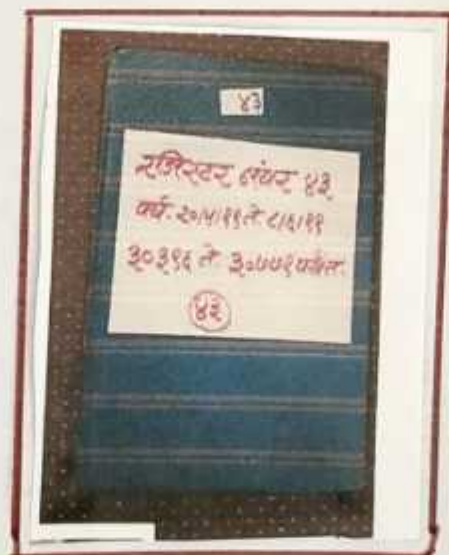 ४३
रजिस्टर नंबर ४३
वर्ष. २०/५/९९ ते ८/६/९९
३०३९६ ते ३०७७१ पर्यंत.
४३